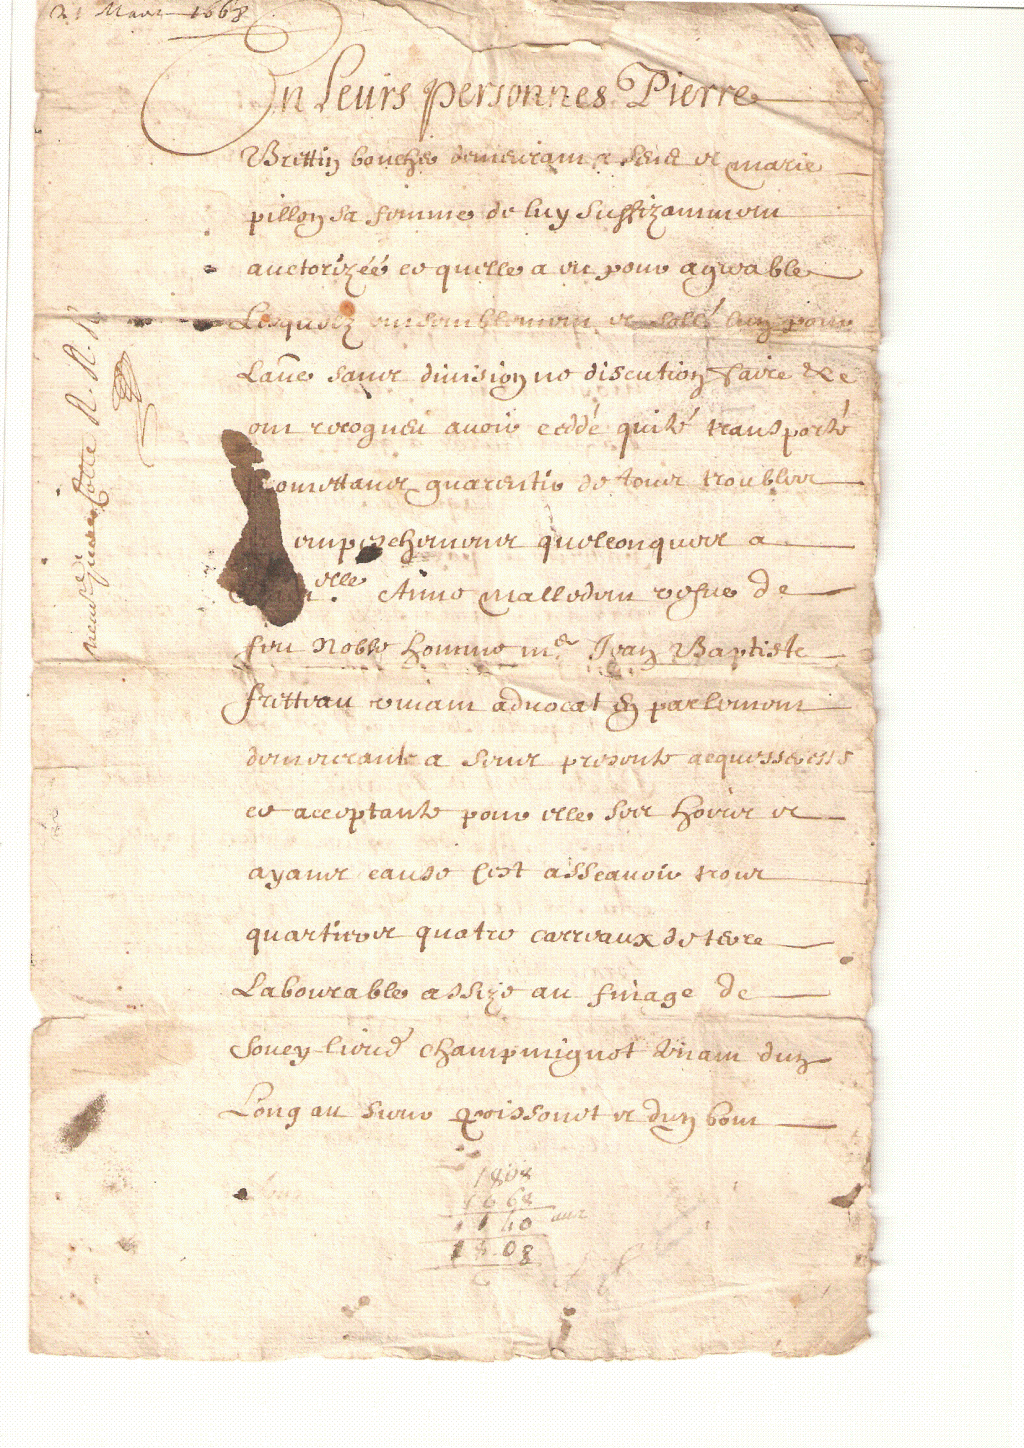 21 Mars 1668
En Leurs personnes Pierre
Brettin boucher demeurant a Sens et marie
pillon sa femme de luy suffizamment
auctorizéé ce quelle a eu pour agreable
Lesquelz ensemblement et sollé lun pour
Laue sans division ne discution faire &c
ont recogneu avoir ceddé quité transporté
promettans guarentir de tous troubles
et empeschemens quelconques a
elle Anne malledan vefue de
feu Noble homme me Jean Baptiste
fretteau vivant advocat en parlement
demeurante a Sens presente acquesseresse
et acceptante pour elle ses hoirs et
ayans cause Cest asseavoir trois
quartiers quatre carreaux de terre
Labourable assize au finage de
Soucy lieud Champmignot tenant dun
Long au sieur poissonet et dun bout
1808
1668
1140 ans
1808
Cotte R. R. R.